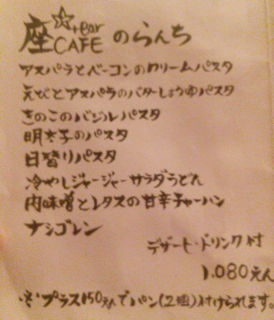 座☆+Bar CAFE のらんち
アスパラとベーコンのクリームパスタ
えびとアスパラのバターしょうゆパスタ
きのこのバジルパスタ
明太子のパスタ
日替りパスタ
冷やしジャージャーサラダうどん
肉味噌とレタスの甘辛チャーハン
ナシゴレン
デザート・ドリンク付
1,080えん
プラス150えんでパン(2個)付けられます。